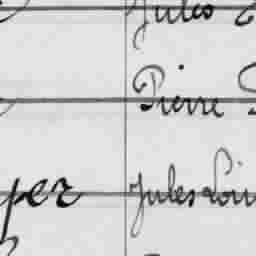 Jules
Pierre
per Jules Loui